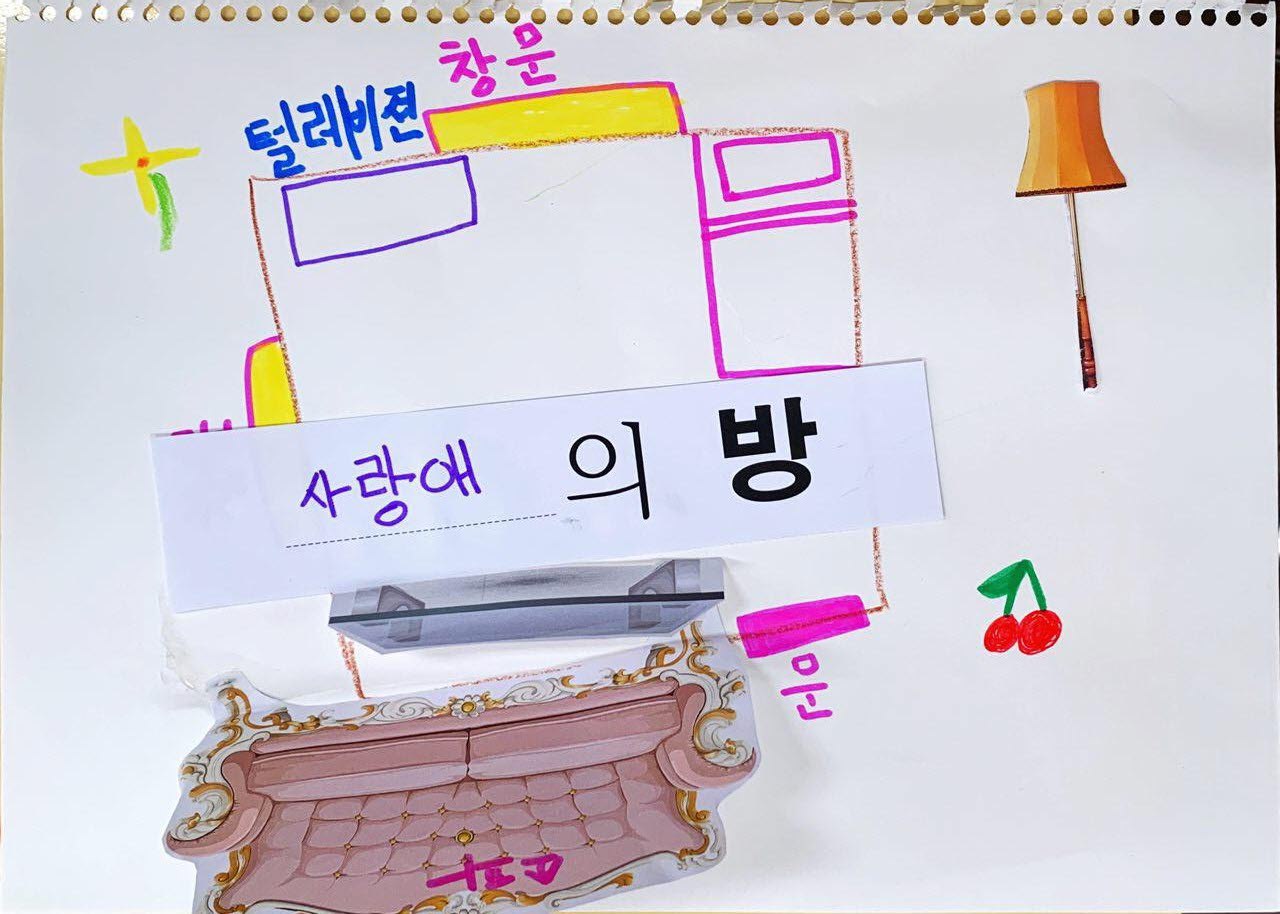 창문
텔레비젼
사랑애 의 방
문